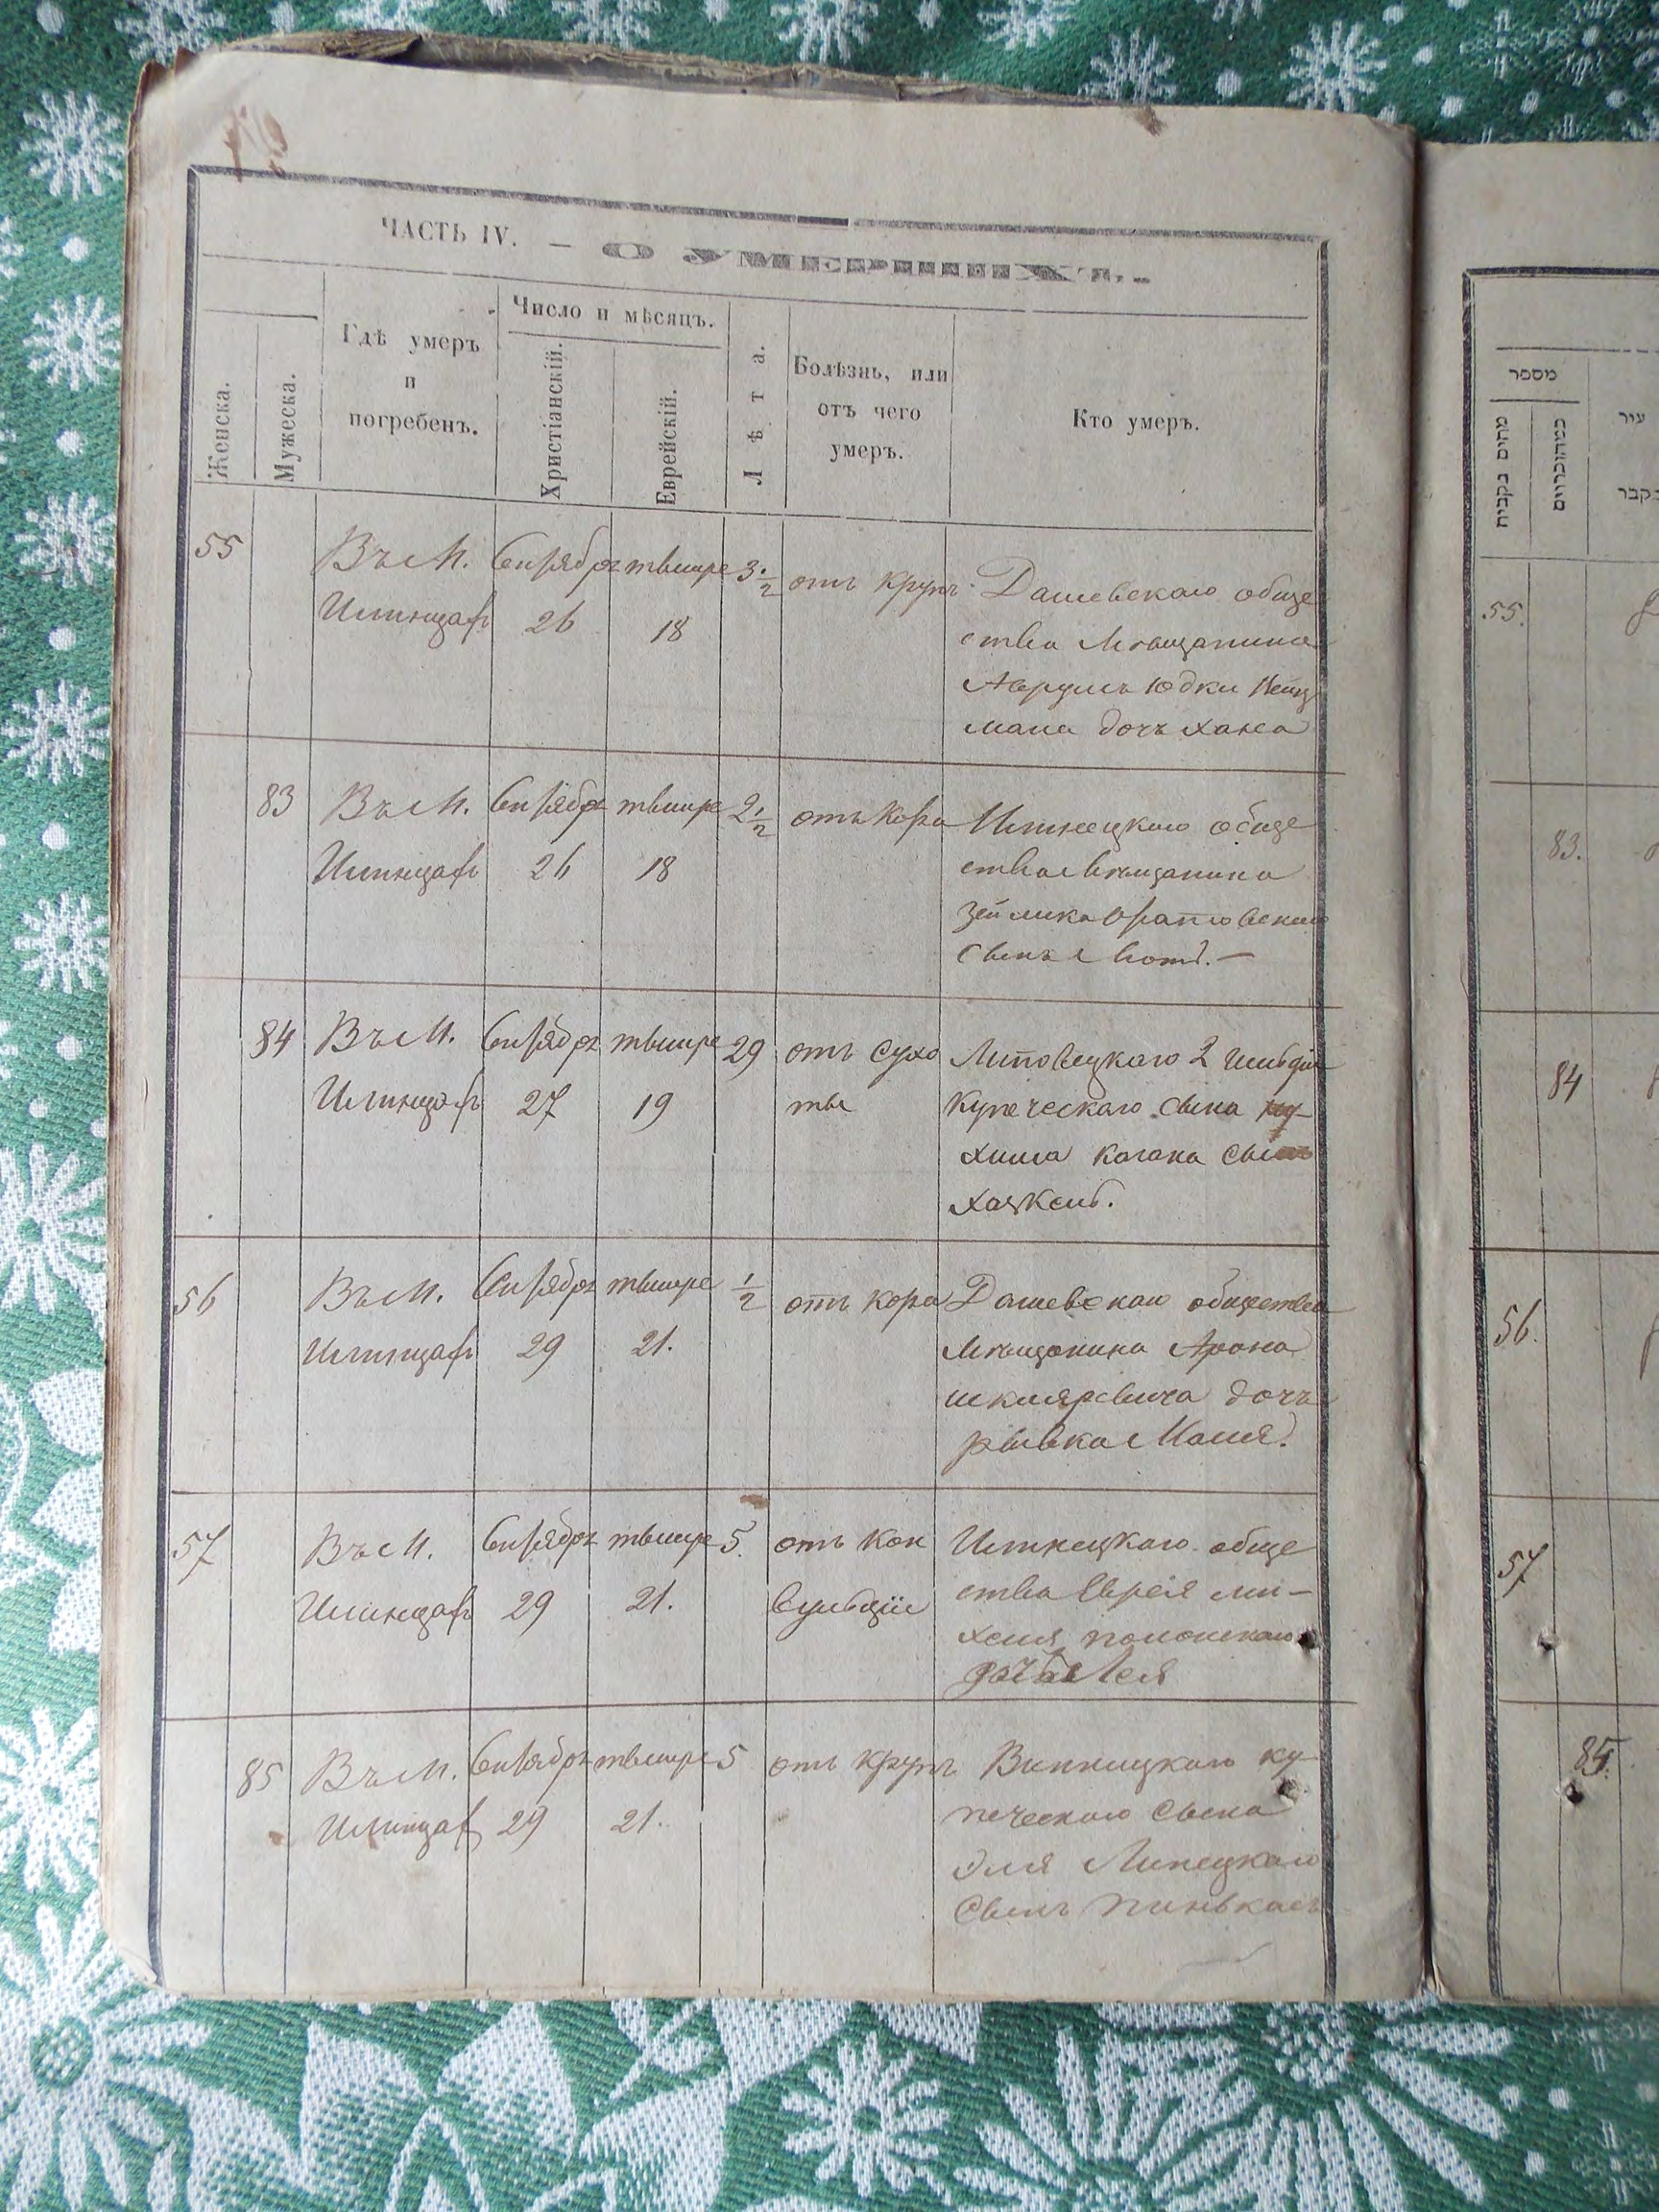 ЧАСТЬ IV. — О УМЕРШИХЪ.
Женска.
Мужеска.
Гдѣ умеръ
и
погребенъ.
Число и мѣсяцъ.
Христіанскій.
Еврейскій.
Лѣта.
Болѣзнь, или
отъ чего
умеръ.
Кто умеръ.
55
Въ М.
Илинцахъ
Сентября
26
тышре
18
3 1/2
отъ крупъ
Дашевскаго обще
ства Мѣщанина
Аврумъ Юдки
мана дочь Хана
83
Въ М.
Илинцахъ
Сентября
26
тышре
18
2 1/2
отъ кора
Илинецкаго обще
ства Мѣщанина
Зейлика Оратовскаго
Сынъ
84
Въ М.
Илинцахъ
Сентября
27
тышре
19
29
отъ сухо
ты
Липовецкаго 2 гильдіи
Купеческаго сына ну
хима Когана сынъ
Хацкель.
56
Въ М.
Илинцахъ
Сентября
29
тышре
21.
1/2
отъ кора
Дашевскаго общества
Мѣщанина Арона
шкляревича дочь
рывка Маля.
57
Въ М.
Илинцахъ
Сентября
29
тышре
21.
5.
отъ кон
вульціи
Илинецкаго обще
ства Еврея ми-
хеля полонскаго
дочь Лея
85
Въ М.
Илинцахъ
Сентября
29
тышре
21.
5
отъ крупъ
Винницкаго ку
печескаго сына
Эля Липецкаго
Сынъ Пинькасъ
מספר
עיר
קבר
55.
83.
84
56.
57
85.